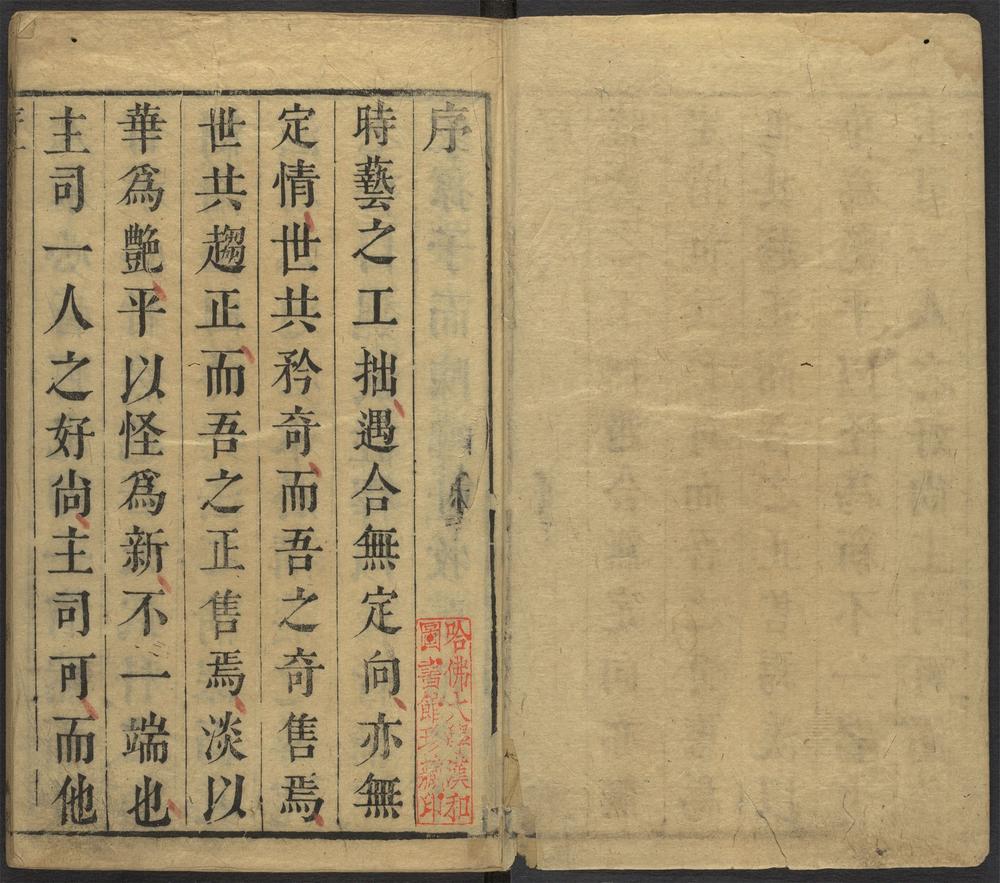 序
時藝之工拙遇合無定向亦無
定情世共矜奇而吾之奇售焉
世共趨正而吾之正售焉淡以
華爲艷平以怪爲新不一端也
主司一人之好尚主司可而他
哈佛大學漢和
圖書館珍藏印